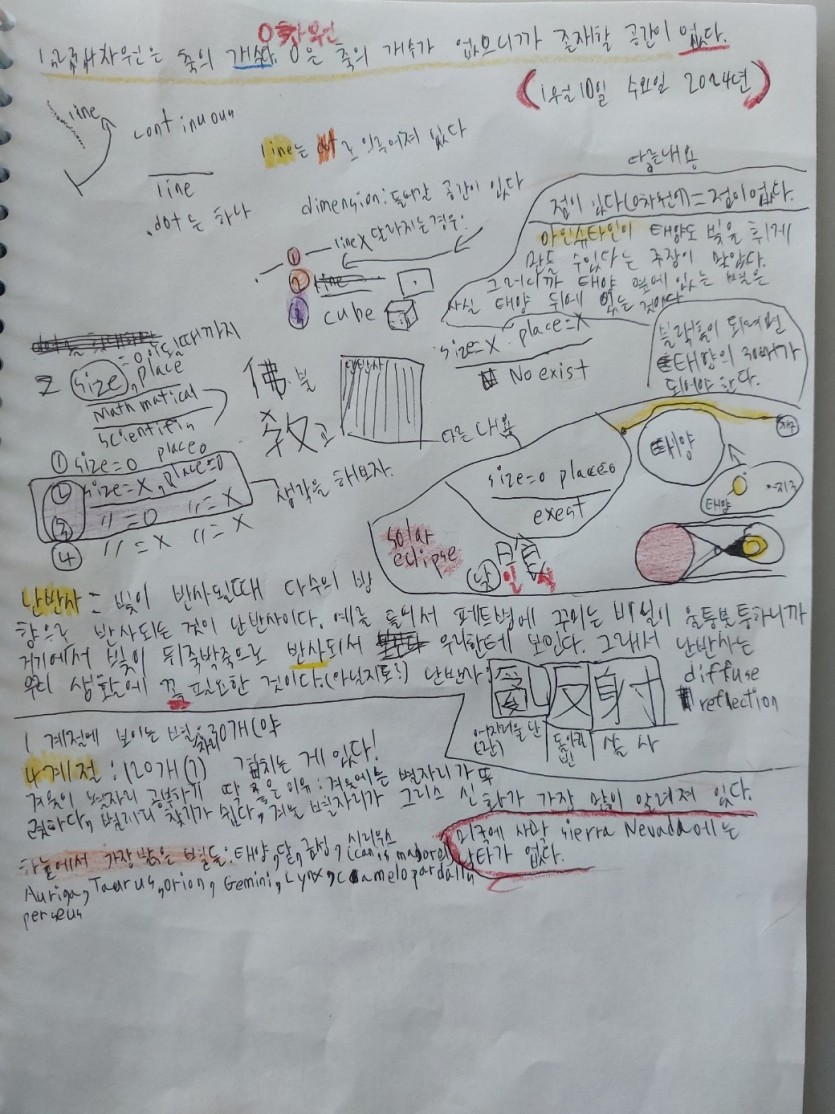 0차원
1,2,3,4차원은 축의 개수다. 0은 축의 개수가 없으니까 존재할 공간이 없다.
(1월 10일 수요일 2024년)
line
continuous
line는 dot로 이루어져 있다
line
.dot는 하나
dimension: 들어갈 공간이 있다
line X 달라지는경우:
1
2 line
3 cube
다른내용
점이 있다(0차원)= 점이 없다.
아인슈타인이 태양도 빛을 휘게
만들 수있다는 주장이 맞았다.
그러니까 태양 옆에 있는 별은
사실 태양 뒤에 있는 것이다
size=X place=X
No exist
블랙홀이 되려면
태양의 30배가
되어야 한다.
0이될때까지
2 size, place
mathmatical
scientific
① size=0 place0
② size=X, place=0
③ 〃=0 〃=X
④ 〃=X 〃=X
생각을 해보자.
佛 불
敎 교
난반사
다른 내용
size=0 place0
exest
태양
지구
태양
지구
solar
eclipse
낮
日食
일 식
난반사 = 빛이 반사될때 다수의 방
향으로 반사되는 것이 난반사이다. 예를 들어서 페트병에 꾸미는 비닐이 울퉁불퉁하니까
거기에서 빛이 뒤죽박죽으로 반사되서 우리한테 보인다. 그래서 난반사는
우리 생활에 꼭 필요한 것이다.(아닌지도!) 난반사:
亂反射
어지러울 난
(란)
돌이킬
반
쏠 사
diffuse
reflection
1 계절에 보이는 별자리:30개(약
4계절: 120개(?) 겹치는 게 있다!
겨울이 별자리 공부하기 딱 좋은 이유: 겨울에는 별자리가 뚜
렷하다, 별자리 찾기가 쉽다, 겨울 별자리가 그리스 신화가 가장 많이 알려져 있다.
하늘에서 가장 밝은 별들: 태양, 달, 금성, 시리우스
(canis majore)
Auriga, Taurus, orion, Gemini, Lynx, camelopardally
perseus
미국에 사막 sierra Nevada에는
낙타가 없다.